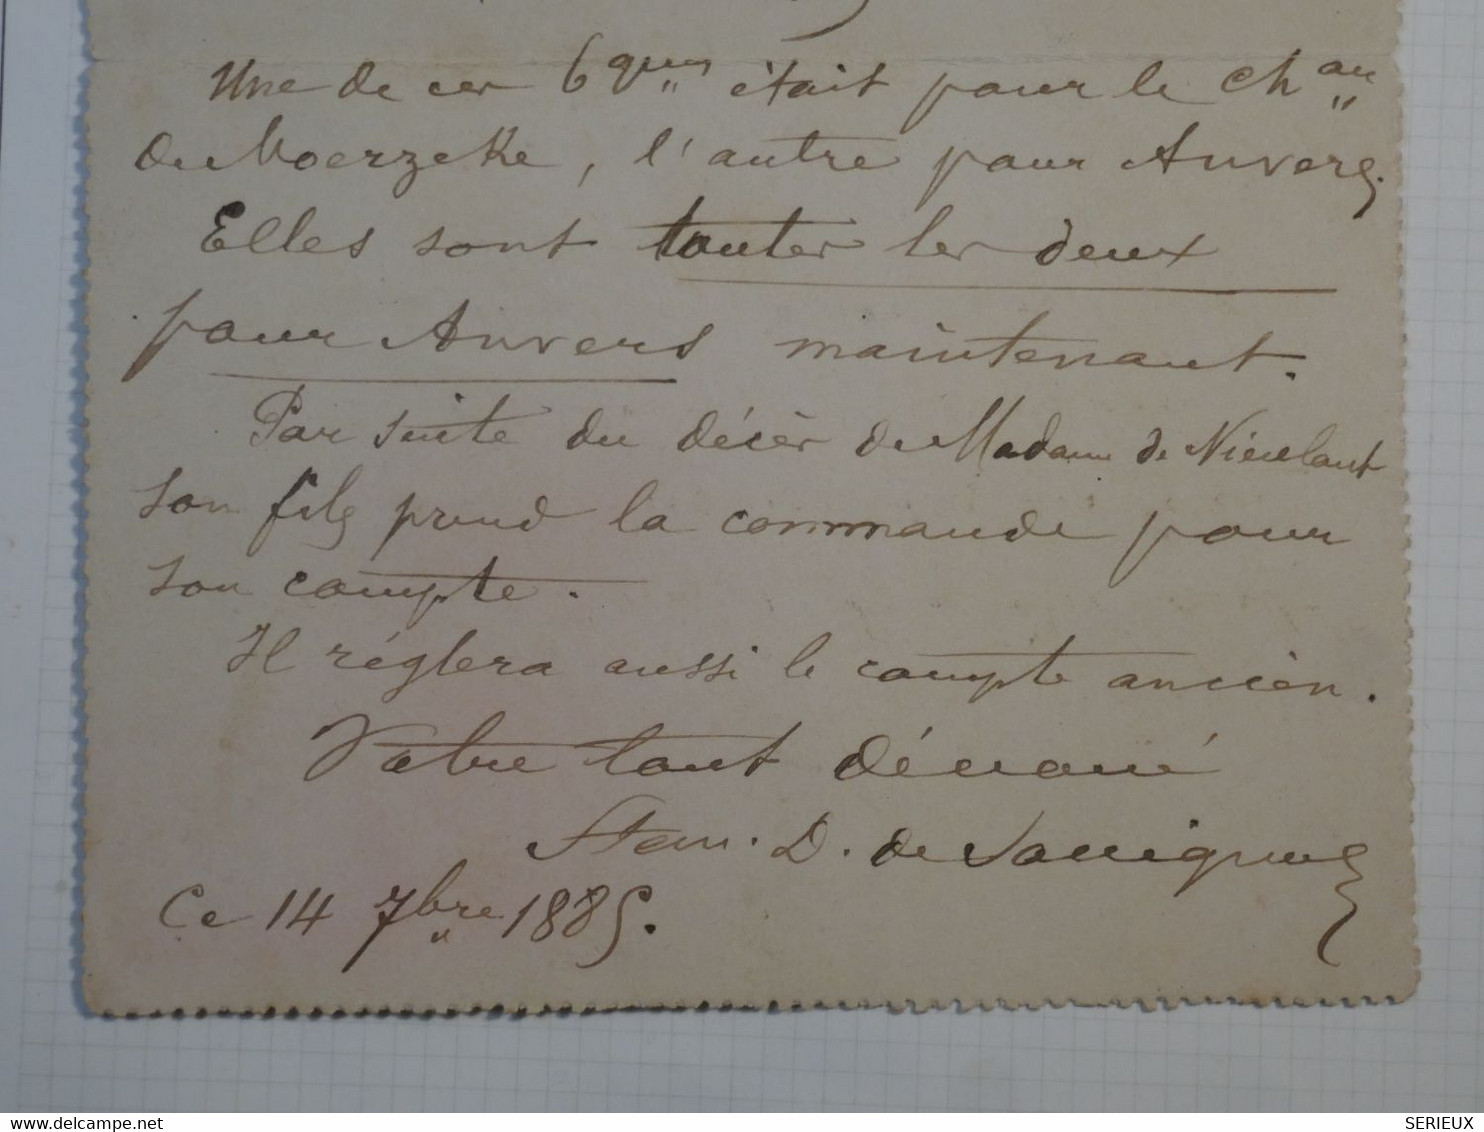 Une de ces 6 ques était pour le chau
de Moerzeke, l'autre pour Anvers.
Elles sont toutes les deux
pour Anvers maintenant.
Par suite du décès de Madame de Nieulant
son fils prend la commande pour
son compte.
Il réglera aussi le compte ancien.
Votre tout dévoué
Stan. D. de
Ce 14 7bre 1885.
delcampe.net
SERIEUX